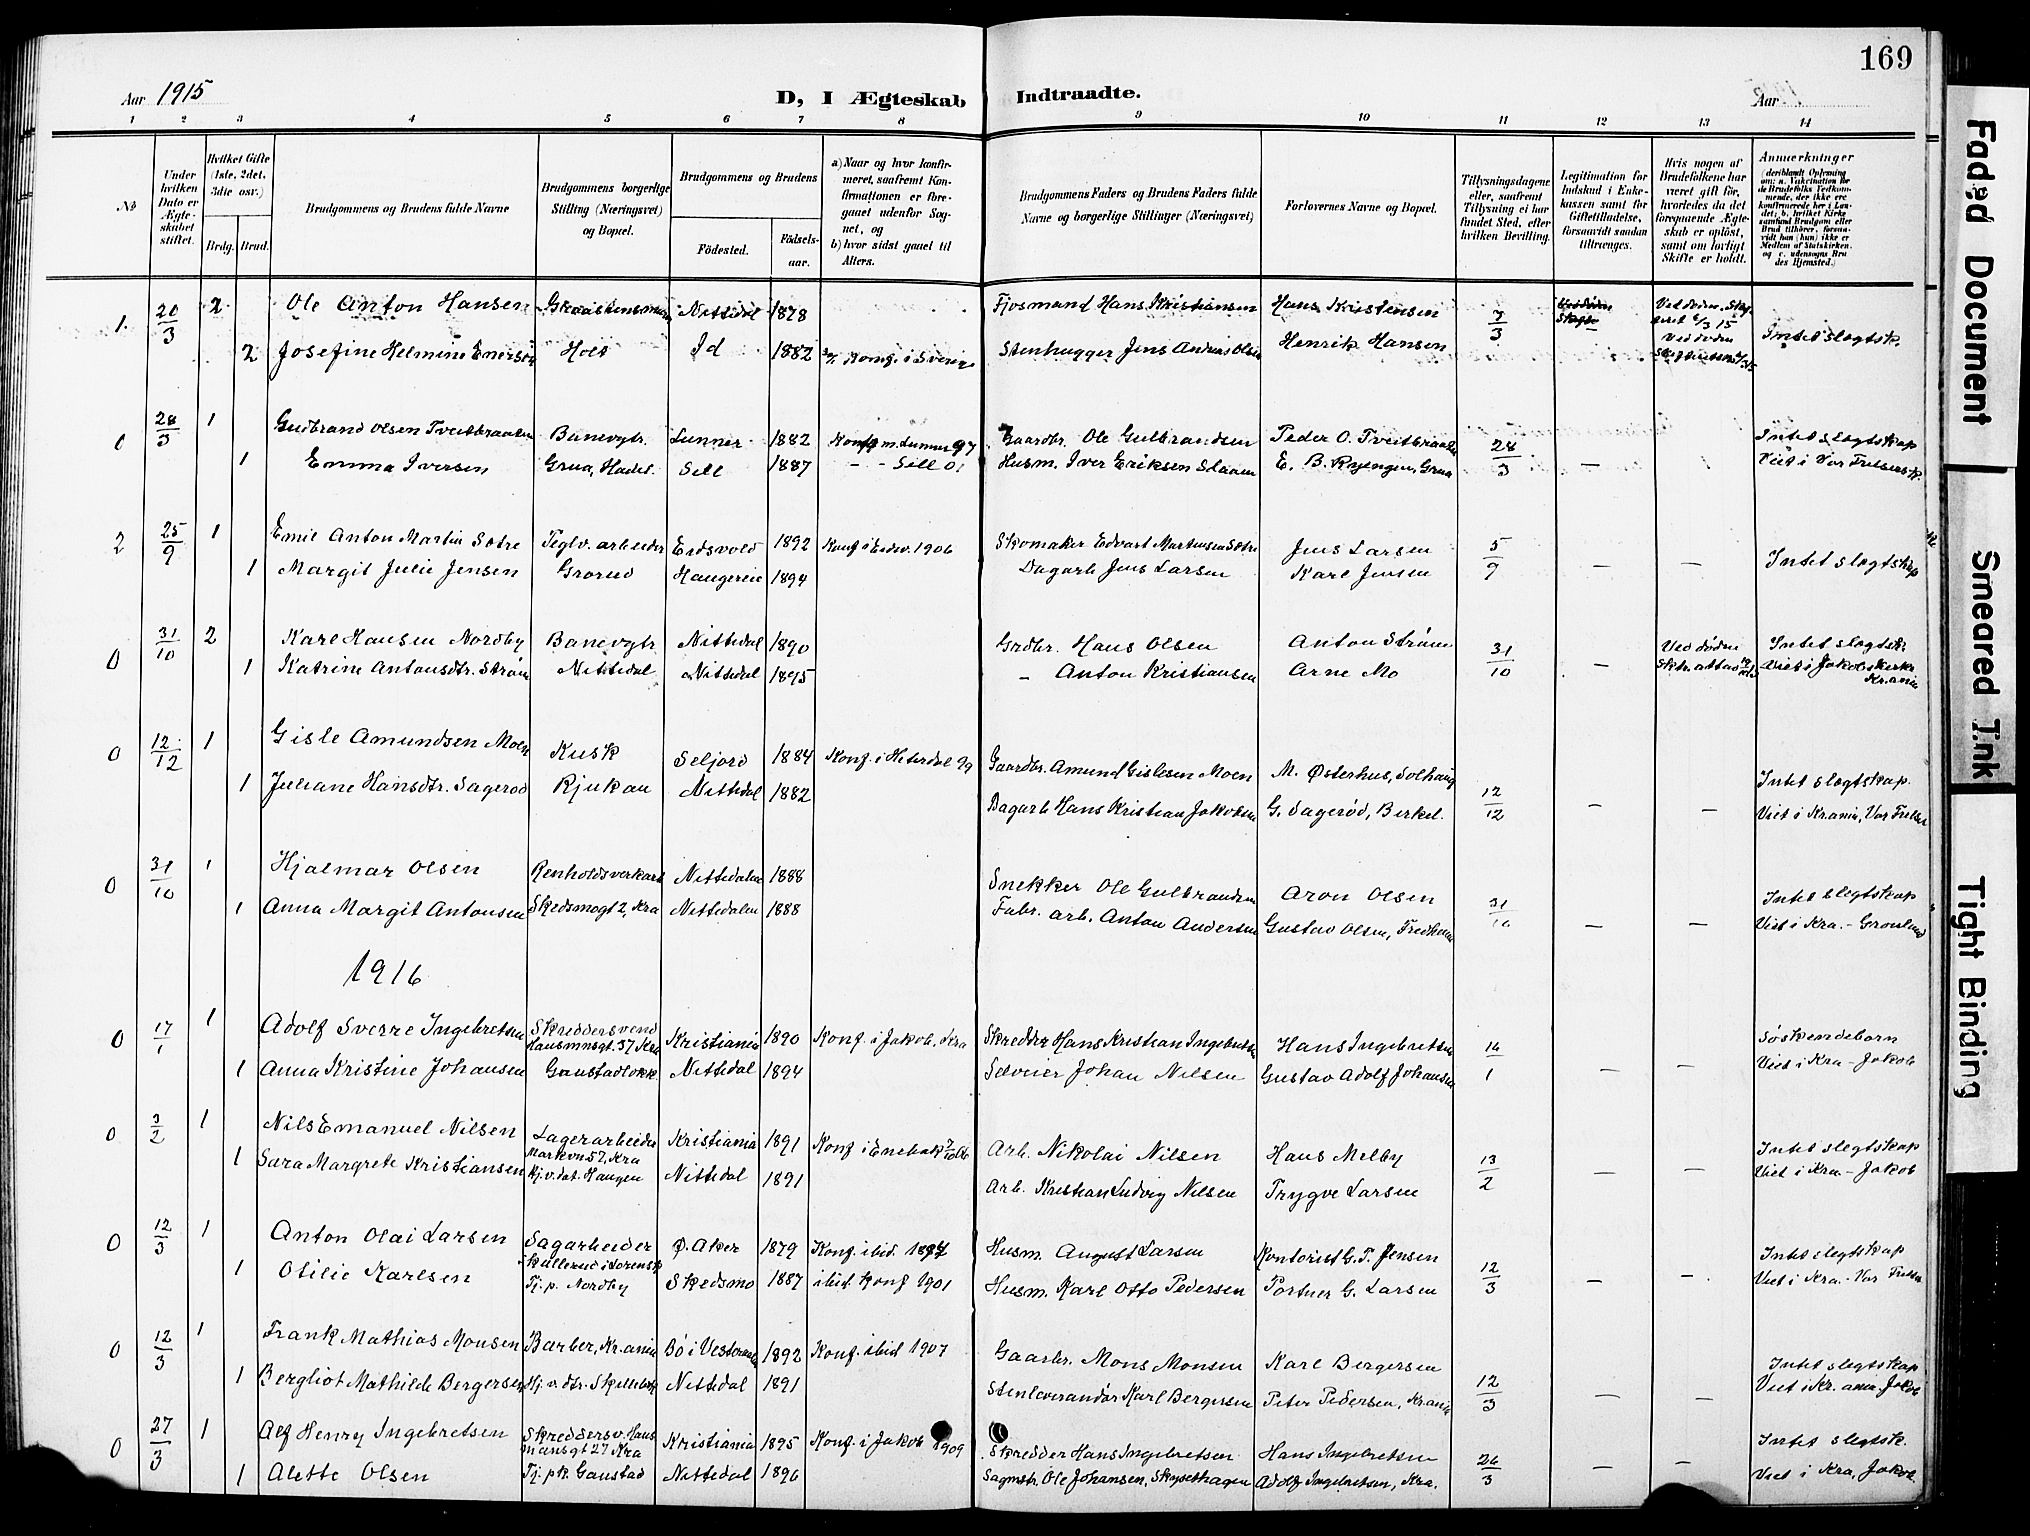 169
Aar 1915
D, I Ægteskab Indtraadte.
Aar
1 2 3 4 5 6 7 8 9 10 11 12 13 14
No
Under hvilken Dato er Ægteskabet stiftet.
Hvilket Gifte (1ste, 2det, 3die osv.)
Brdg. Brud.
Brudgommens og Brudens fulde Navne
Brudgommens borgerlige Stilling (Næringsvei) og Bopæl.
Brudgommens og Brudens
Fødested.
Fødselsaar.
a) Naar og hvor konfirmeret, saafremt Konfirmationen er foregaaet udenfor Sognet, og
b) hvor sidst gaaet til Alters.
Brudgommens Faders og Brudens Faders fulde Navne og borgerlige Stillinger (Næringsvei)
Forlovernes Navne og Bopæl.
Tillysningsdagene eller, saafremt Tillysning ei har fundet Sted, efter hvilken Bevilling.
Legitimation for Indskud i Enkekassen samt for Giftetilladelse, forsaavidt saadan tiltrænges.
Hvis nogen af Brudefolkene har været gift før, hvorledes da det foregaaende Ægteskab er opløst, samt om lovligt Skifte er holdt.
Anmerkninger
1. 20/3 2 Ole Anton Hansen Nittedal 1878 Fjosmand Hans Kristiansen Hans Kristensen 7/3 Ved døden
2 Josefine Helmine Enersen Holt Id 1882 Konf. i Sverige Stenhugger Jens Anders Olsen Henrik Hansen Intet slegtsk.
0 28/3 1 Gudbrand Olsen Tveitbraaten Banevgtr. Lunner 1882 Gaardbr. Ole Gulbrandsen Peder O. Tveitbraaten 28/3 Intet slegtskap
1 Emma Iversen Grua, Hadel. Sell 1887 - - Sell 01 Husm. Iver Eriksen Slaaen E. B. Ryengen, Grua — Viet i Vor Frelsersk.
2 25/9 1 Emil Anton Martin Sætre Teglv. arbeider Eidsvold 1892 Konf. i Eidsv. 1906 Skomaker Edvart Martinsen Sætre Jens Larsen 5/9
1 Margit Julie Jensen Grorud Haugerei 1894 Dagarb Jens Larsen Karl Jensen — — Intet slegtskap
0 31/10 2 Karl Hansen Nordby Banevgtr Nittedal 1890 Grdbr. Hans Olsen Anton Strøm 31/10 Ved døden Intet slegtsk.
1 Katrine Antonsdtr. Strøm Nittedal Nittedal 1895 - Anton Kristiansen Arne Mo — Viet i Jakobskerke Kr.ania
0 12/12 1 Gisle Amundsen Moen Kusk Seljord 1884 Konf. i Hiterdal 99 Gaardbr. Amund Gislesen Moen M. Østerhus, Solhaug 12/12 Intet slegtskap.
1 Juliane Hansdtr. Sagerød Rjukan Nittedal 1882 Dagarb Hans Kristian Jakobsen G. Sagerød, Birkel. — — Viet i Kr.ania, Vor Frelser
0 31/10 1 Hjalmar Olsen Renholdsverkarb Nittedalen 1888 Snekker Ole Gulbrandsen Aron Olsen 31/10 Intet slegtskap
1 Anna Margit Antonsen Skedsmogt 2, Kra Nittedalen 1888 Fabr. arb. Anton Andersen Gustav Olsen, Fredheim — — Viet i Kra. - Grønland
1916
0 17/1 1 Adolf Sverre Ingebretsen Skreddersvend Hausmnsgt. 37 Kra Kristiania 1890 Konf. i Jakob, Kra Skredder Hans Kristian Ingebretsen Hans Ingebretsen Søskendebørn
1 Anna Kristine Johansen Gaustadløkk. Nittedal 1894 Selveier Johan Nilsen Gustav Adolf Johansen — — Viet i Kra - Jakob
0 3/2 1 Nils Emanuel Nilsen Lagerarbeider Markvn 57, Kra Kristiania 1891 Konf. i Enebak Arb. Nikolai Nilsen Hans Melby 13/2 Intet slegtskap
1 Sara Margrete Kristiansen Hj.v. dat. Haugen Nittedal 1891 Arb. Kristian Ludvig Nilsen Trygve Larsen — — Viet i Kra - Jakob
0 12/3 1 Anton Olai Larsen Sagarbeider Ø. Aker 1879 Konf. ibid. Husm. August Larsen Kontorist G. T. Jensen 12/3 Intet slegtskap
1 Otilie Karlsen Tj. p. Nordby Skedsmo 1887 ibid Konf 1901 Husm. Karl Otto Pedersen Portner G. Larsen — — Viet i Kra. - Vor Frelser
0 12/3 1 Frank Mathias Monsen Barber, Kr.ania Bø i Vesteraalen 1892 Konf. ibid 1907 Gaarbr. Mons Monsen Karl Bergersen 12/3 Intet slegtskap
1 Bergliot Mathilde Bergersen Hj. v. dtr. Skillebæk Nittedal 1891 Stenleverandør Karl Bergersen Peter Pedersen, Krania — — Viet i Kr.ania Jakob
0 27/3 1 Alf Henry Ingebretsen Skreddersv. Hausmansgt 27 Kra Kristiania 1895 Konf. i Jakob 1909 Skredder Hans Ingebretsen Hans Ingebretsen 26/3 Intet slegtsk.
1 Alette Olsen Tj. pk. Gaustad Nittedal 1896 Sagmstr. Ole Johansen, Skysethagen Adolf Ingebretsen, Kra. — — Viet i Kra, Jakob
Faded Document
Smeared Ink
Tight Binding